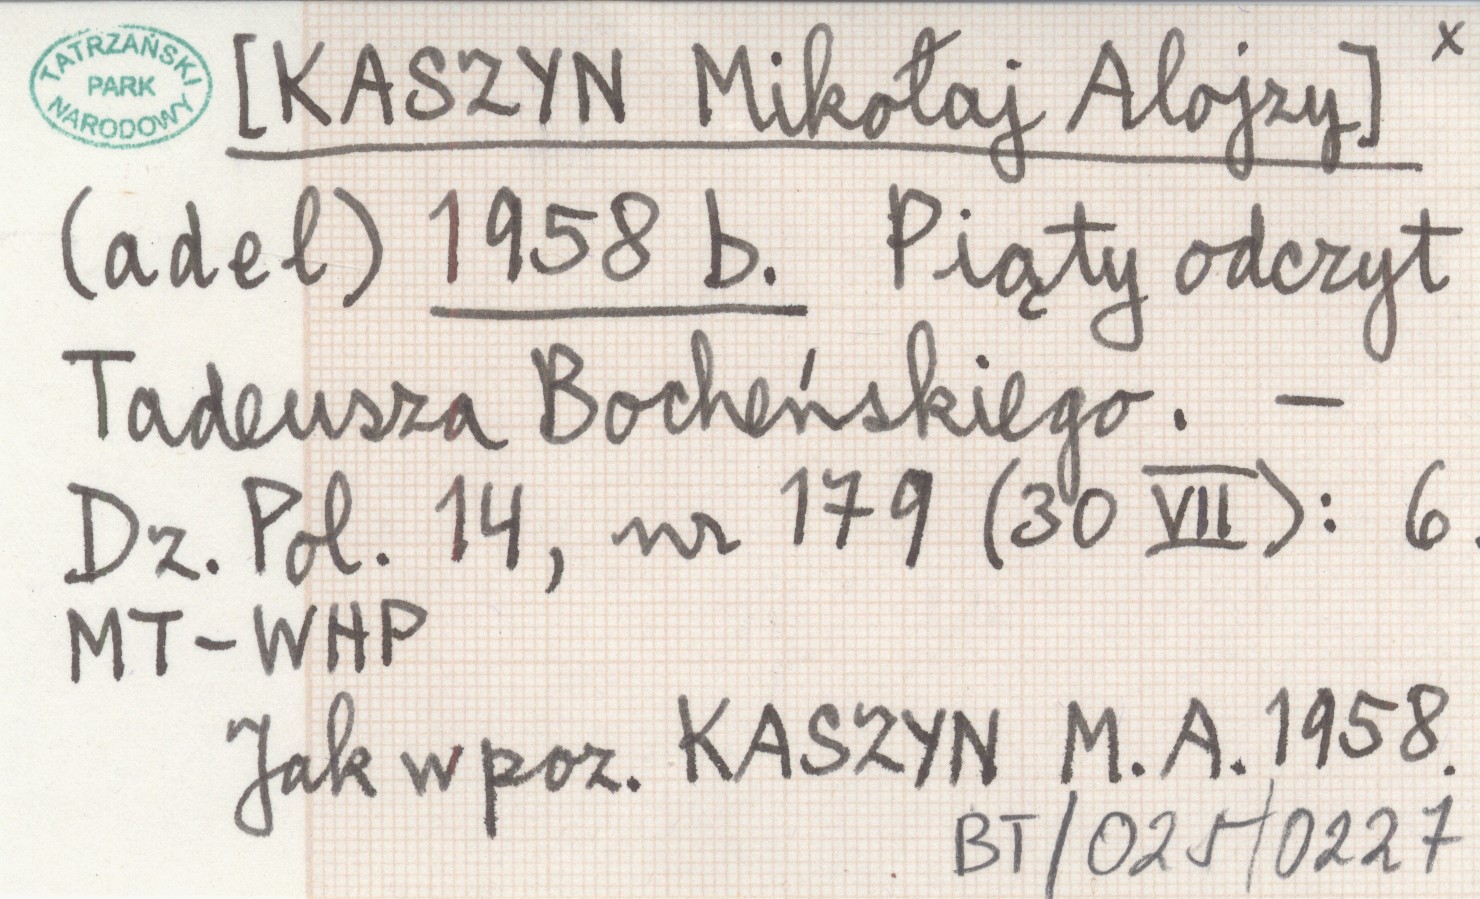 TATRZAŃSKI
PARK
NARODOWY
[KASZYN Mikołaj Alojzy] x
(adel) 1958 b. Piąty odczyt
Tadeusza Bocheńskiego. –
Dz. Pol. 14, nr 179 (30 VII): 6.
MT-WHP
Jak w poz. KASZYN M. A. 1958.
BT/025/0227